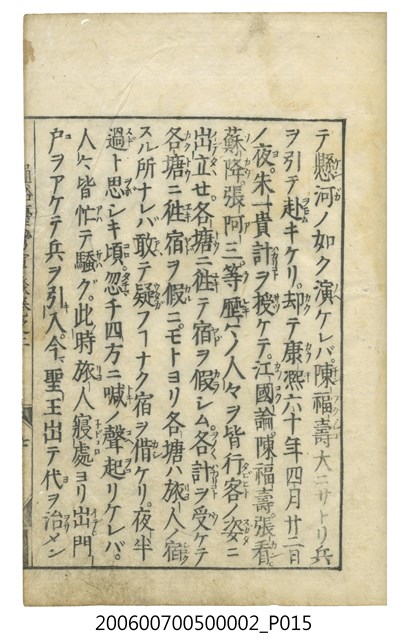 テ懸河ノ如ク演ケレバ陳福壽大ニサトリ兵
ヲ引テ赴キケリ却テ康熙六十年四月廿二日
ノ夜朱一貴計ヲ授ケテ江國論陳福壽張看
蘇降張阿三等歴々ノ人々ヲ皆行客ノ姿ニ
出立セ各塘ニ徃テ宿ヲ假シム各計ヲ受ケテ
各塘ニ徃宿ヲ假ニモトヨリ各塘ハ旅人ノ宿
スル所ナレバ敢テ疑フーナク宿ヲ借ケリ夜半
過ト思シキ頃忽チ四方ニ喊ノ聲起リケレバ
人々皆忙テ騒グ此時旅人寢處ヨリ出門
戸ヲアケテ兵ヲ引入今聖王出テ代ヲ治メン
200600700500002_P015